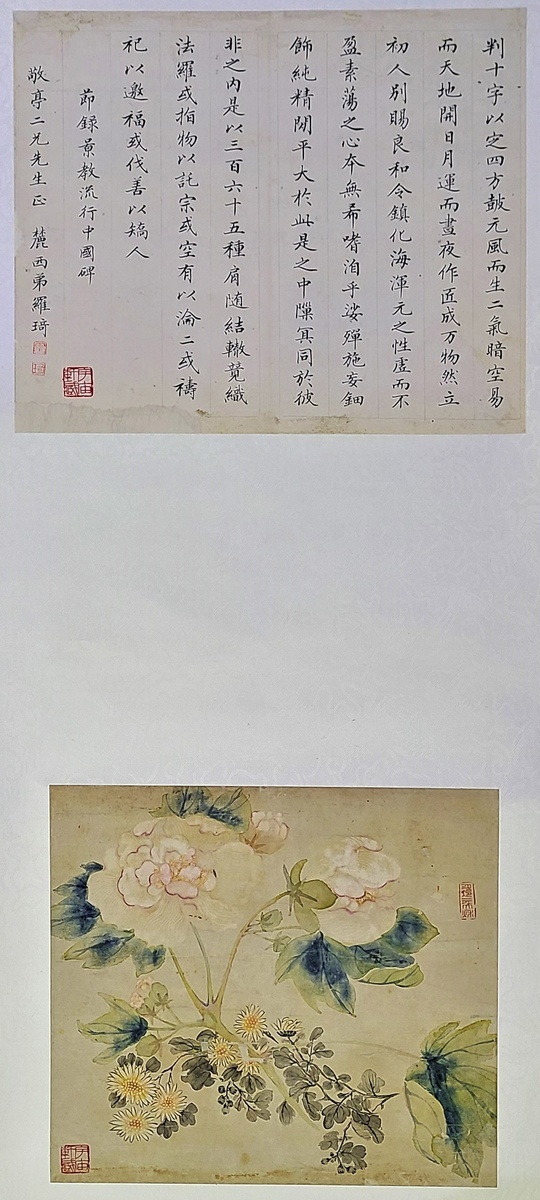 判十字以定四方鼓元風而生二氣暗空易
而天地開日月運而晝夜作匠成万物然立
初人別賜良和令鎮化海渾元之性虛而不
盈素蕩之心本無希嗜洎乎娑殫施妄鈿
飾純精閒平大於此是之中隟冥同於彼
非之内是以三百六十五種肩随結轍競織
法羅或指物以託宗或空有以淪二或禱
祀以邀福或伐善以矯人
節錄景教流行中國碑
敬亭二兄先生正 麓西弟羅琦